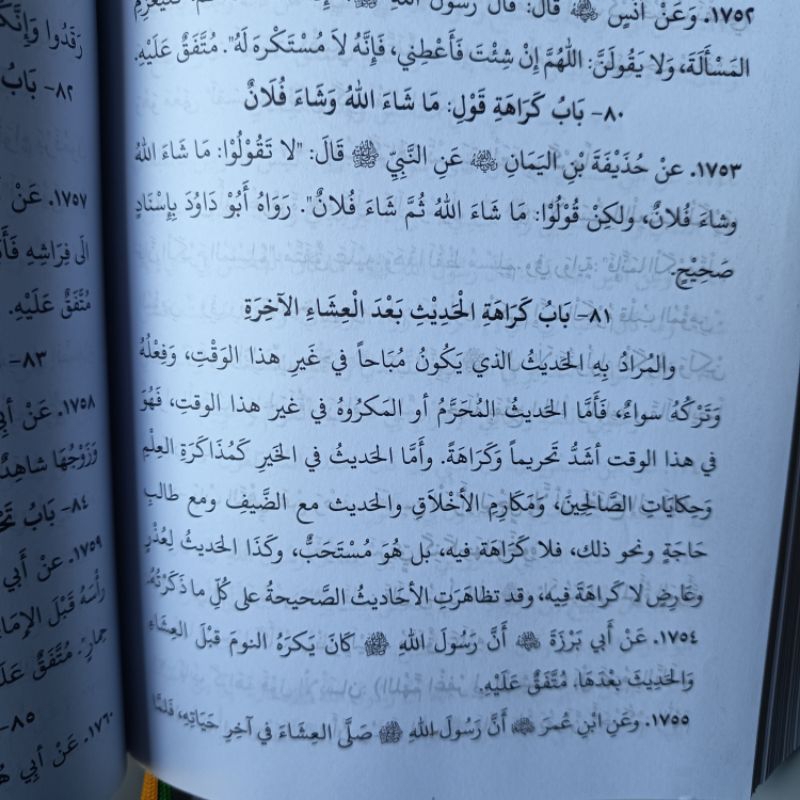 ١٧٥٢. وَعَنْ أَنَسٍ ﷺ قَالَ: قَالَ رَسُولُ اللهِ
المَسْأَلَةَ، وَلا يَقُولَنَّ: اللَّهُمَّ إِنْ شِئْتَ فَأَعْطِنِي، فَإِنَّهُ لاَ مُسْتَكْرِهَ لَهُ". مُتَّفَقٌ عَلَيْهِ.
٨٠- بَابُ كَرَاهَةِ قَوْلِ: مَا شَاءَ اللهُ وَشَاءَ فُلَانٌ
١٧٥٣. عنْ حُذَيْفَةَ بْنِ اليَمَانِ ﷺ عَنِ النَّبِيِّ ﷺ قَالَ: "لا تَقُوْلُوْا: مَا شَاءَ اللهُ
وشاءَ فُلانٌ، ولكِنْ قُوْلُوْا: مَا شَاءَ اللهُ ثُمَّ شَاءَ فُلانٌ". رَوَاهُ أَبُوْ دَاوُدَ بِإِسْنَادٍ
صَحِيْحٍ.
٨١- بَابُ كَرَاهَةِ الْحَدِيْثِ بَعْدَ الْعِشَاءِ الآخِرَةِ
والمُرادُ بِهِ الحَديثُ الذي يَكُونُ مُبَاحاً في غَيرِ هذا الوَقْتِ، وَفِعْلُهُ
وَتَرْكُهُ سواءٌ، فَأَمَّا الحَديثُ المُحَرَّمُ أو المَكرُوهُ في غير هذا الوقتِ، فَهُوَ
في هذا الوقت أشَدُّ تَحريماً وَكَرَاهَةً. وأَمَّا الحَديثُ في الخَيرِ كَمُذَاكَرَةِ العِلْمِ
وَحِكايَاتِ الصَّالِحِينَ، وَمَكَارِمِ الأخْلَاقِ والحَديث مع الضَّيفِ ومع طالبِ
حَاجَةٍ ونحو ذلك، فلا كَرَاهَة فيه، بل هُوَ مُسْتَحَبٌّ، وكَذَا الحَديثُ لِعُذْرٍ
وعَارِضٍ لا كَراهَةَ فِيه، وقد تظاهَرَتِ الأحَاديثُ الصَّحيحةُ على كُلِّ ما ذَكَرْتُهُ.
١٧٥٤. عَنْ أَبي بَرْزَةَ ﷺ أنَّ رَسُولَ اللهِ ﷺ كانَ يَكرَهُ النومَ قَبْلَ العِشَاءِ
وَالحَدِيثَ بَعْدَهَا. مُتَّفَقٌ عَلَيْهِ.
١٧٥٥. وعَنِ ابْنِ عُمرَ ﷺ أنَّ رَسُولَ اللهِ ﷺ صَلَّى العِشَاءَ في آخِرِ حَيَاتِهِ، فَلمَّا
رَقَدُوا وَإِنَّكُمْ
٨٢- بَابُ
١٧٥٧. عَنْ
الى فِرَاشِهِ
مُتَّفَقٌ عَلَيْهِ.
٨٣-
١٧٥٨. عَنْ أَبِي
وَزَوْجُهَا شاهِدٌ
٨٤- بَابُ
١٧٥٩. عنْ أَبي
رأسَهُ قَبْلَ الإمَامِ
حِمارٍ". مُتَّفَقٌ
٨٥-
١٧٦٠. عَنْ أَبِي